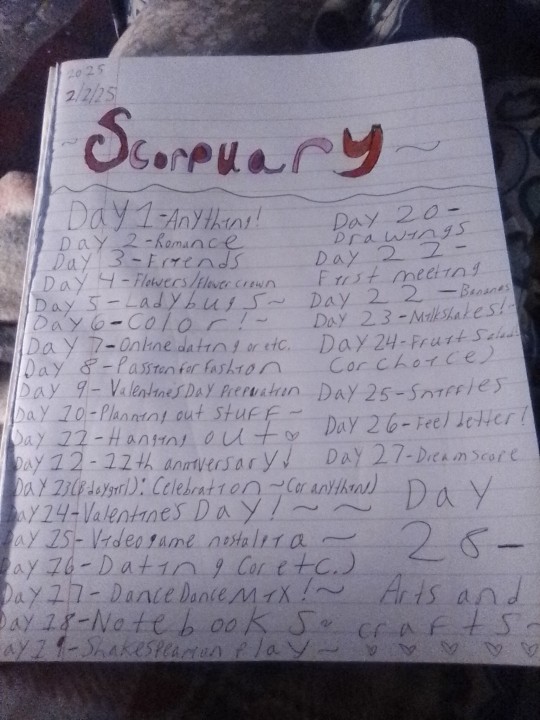 2025
2/2/25
~Scorpuary~
Day 1-Anything!
Day 2-Romance
Day 3-Friends
Day 4-Flowers/Flower crown
Day 5-Ladybugs~
Day 6-Color!~
Day 7-Online dating or etc.
Day 8-Passion for Fashion
Day 9-Valentines Day Preparation
Day 10-Planning out stuff~
Day 11-Hanging out♡
Day 12-11th anniversary!
Day 13(B-day girl): Celebration~(or anything)
Day 14-Valentines Day!~~
Day 15-Videogame nostalgia~
Day 16-Dating (or etc.)
Day 17-DanceDanceMix!~
Day 18-Notebooks~
Day 19-Shakespearean play~
Day 20-
Drawings
Day 21-
First meeting
Day 22-Bananas
Day 23-Milkshakes!~
Day 24-Fruit Salad
(or choice)
Day 25-Sniffles
Day 26-Feel better!
Day 27-Dreamscore
Day
28-
Arts and
crafts~
♡ ♡ ♡ ♡ ♡